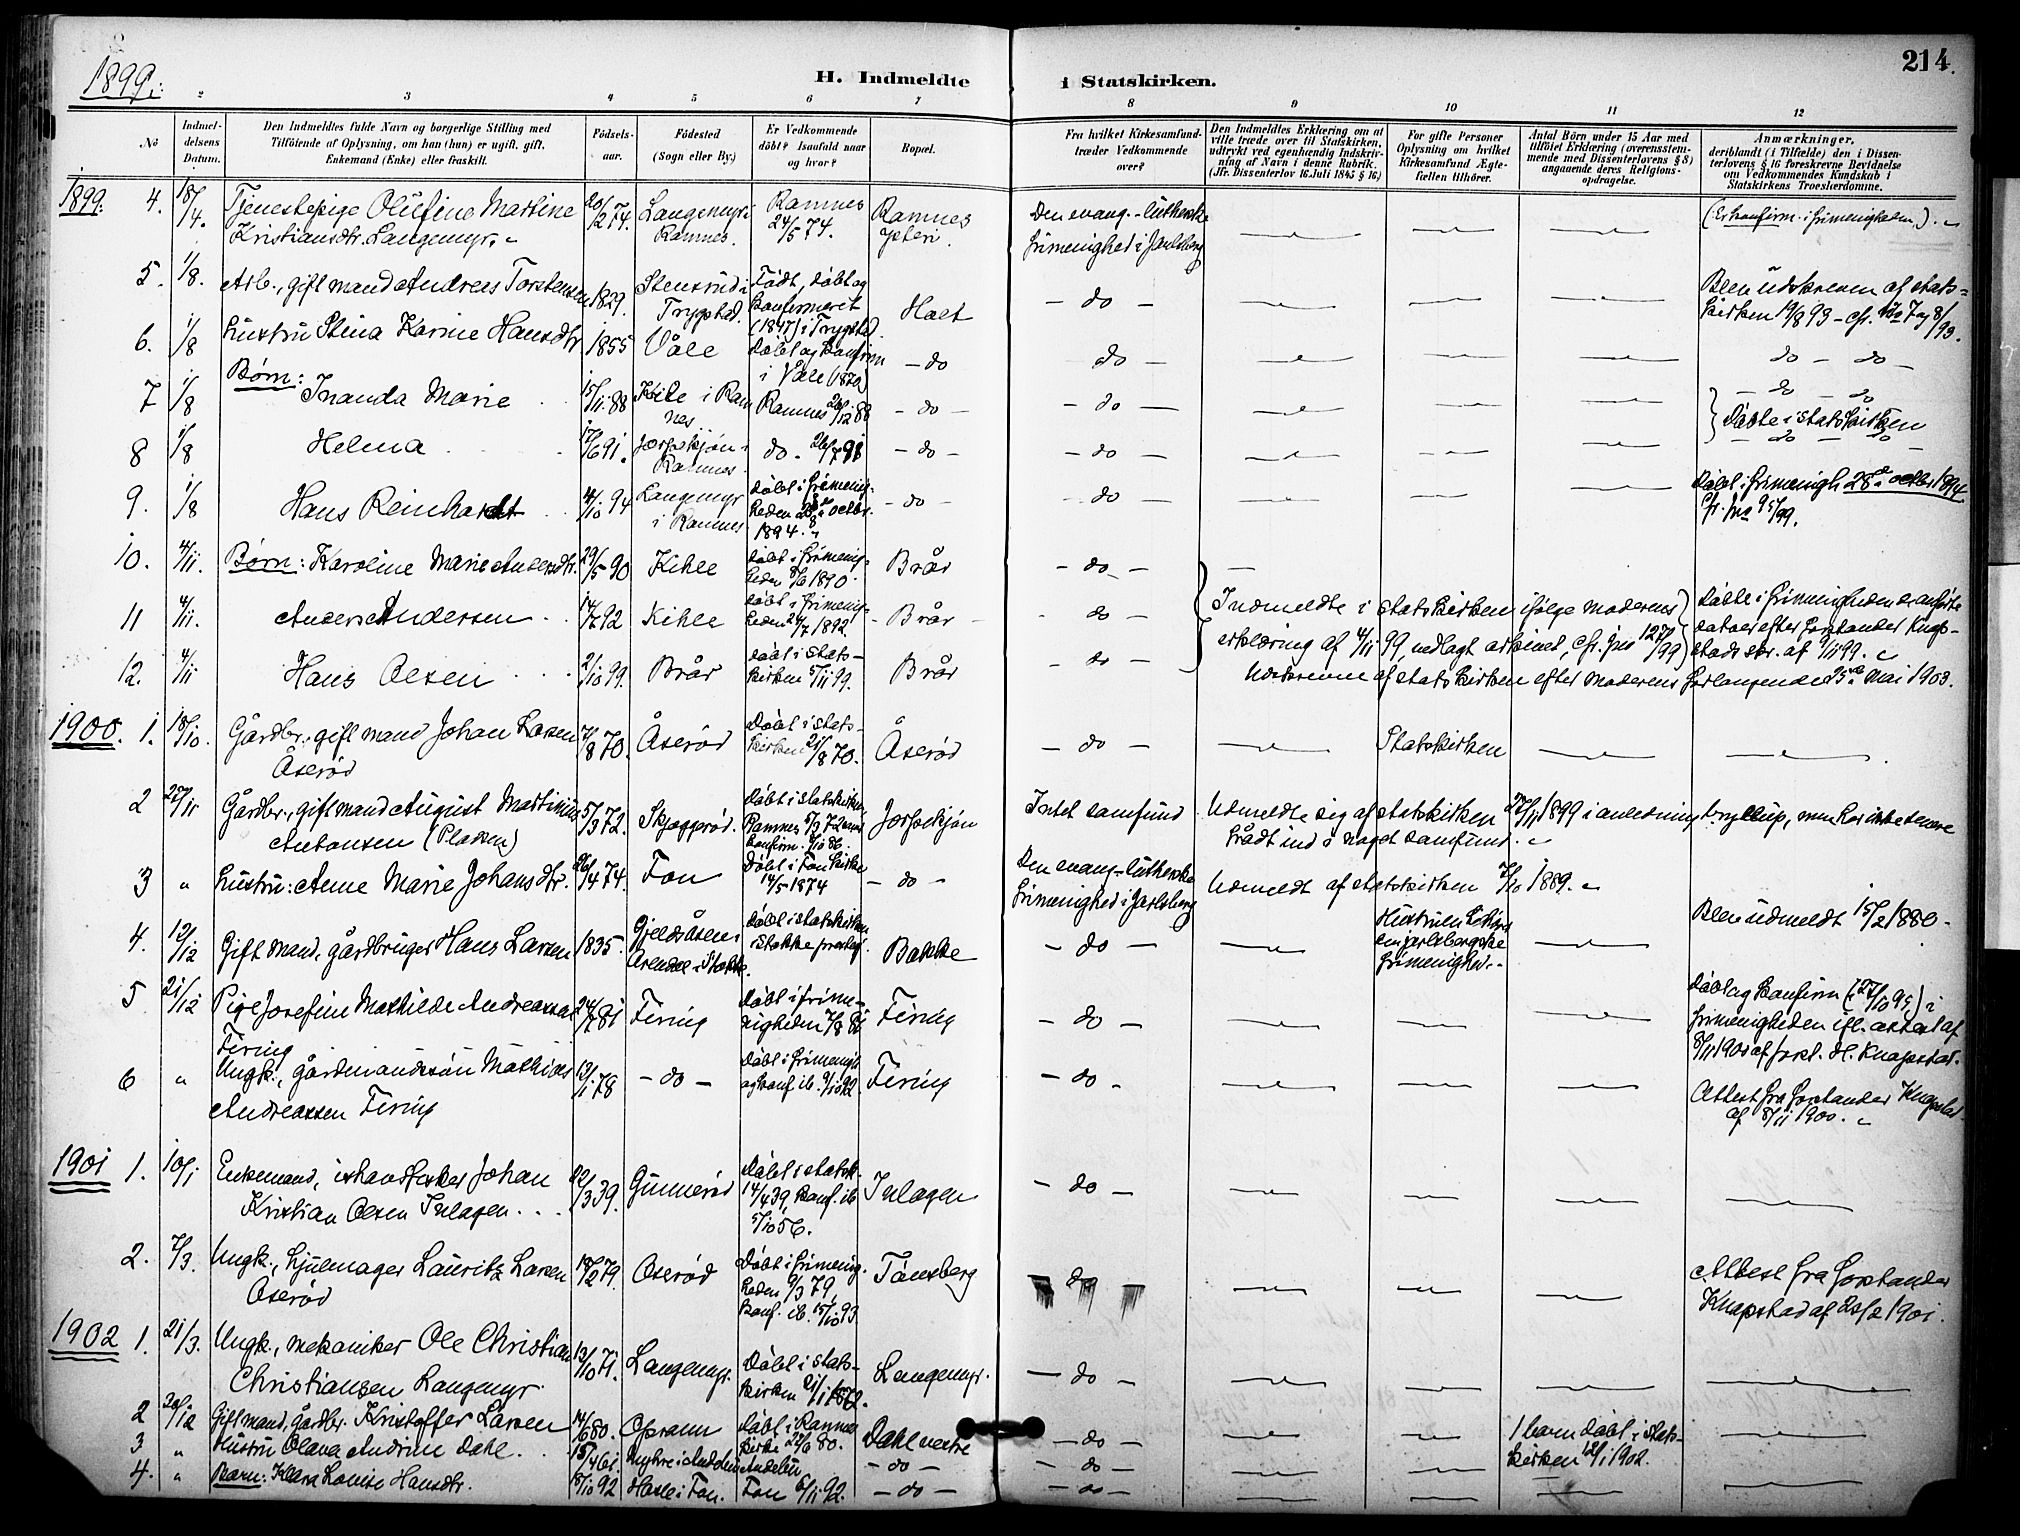 1899.
H. Indmeldte i Statskirken.
214.
2 3 4 5 6 7 8 9 10 11 12
No
Indmel-
delsens
Datum.
Den Indmeldtes fulde Navn og borgerlige Stilling med
Tilföiende af Oplysning, om han (hun) er ugift, gift,
Enkemand (Enke) eller fraskilt.
Födsels-
aar.
Födested
(Sogn eller By.)
Er Vedkommende
döbt? Isaafald naar
og hvor?
Bopæl.
Fra hvilket Kirkesamfund-
træder Vedkommende
over?
Den Indmeldtes Erklæring om at
ville træde over til Statskirken,
udtrykt ved egenhændig Indskriv-
ning af Navn i denne Rubrik.
(Jfr. Dissenterlov 16 Juli 1845 § 16)
For gifte Personer
Oplysning om hvilket
Kirkesamfund Ægte-
fællen tilhörer.
Antal Börn under 15 Aar med
tilföiet Erklæring (overensstem-
mende med Dissenterlovens § 8)
angaaende deres Religions-
opdragelse.
Anmærkninger,
deriblandt (i Tilfælde) den i Dissen-
terlovens § 16 foreskrevne Bevidnelse
om Vedkommendes Kundskab i
Statskirkens Troeslærdomme.
1899. 4. 18/4. Tjenestepige Olufine Martine
Kristiansdtr. Langemyr.
20/2 74. Langemyr i
Ramnes.
Ramnes
24/5 74.
Ramnes
Den evang.-lutherske
frimenighed i Jarlsberg
(Er konfirm. i frimenigheden.)
5. 1/8. Arb., gift mand Andreas Torstensen
1829. Stensrud i
Trygstad.
Födt, döbt og
konfirmeret
(1847) i Trygstad.
Holt
- do -
Blev udskreven af stats-
kirken 19/8 93 - cfr. No 7 og 8/93.
6. 1/8 Hustru Stina Karine Hansdtr 1855 Våle
Döbt og konfirm
i Våle (1870)
- do
do -
do - do -
7 1/8 Börn: Inanda Marie 15/11 88
i Ramnes
Ramnes 26/12 88 - do - - do -
- do - do
Döbte i statskirken
8 1/8 Helma 17/6 91.
Ramnes.
do. 26/7 91 - do - - do - - do - do -
9. 1/8 Hans Reinhardt 4/10 94 Langemyr
i Ramnes
Döbt i frimenig-
heden 28de octbr.
1894.
- do - - do -
Döbt i frimenigh 28de octbr 1894
10. 4/11. Börn: Karoline Marie Andersdtr. 29/5 90 Kihle
Döbt i frimenig-
heden 8/6 1890.
Brår - do -
11 4/11. Anders Andersen 14/7 92 Kihle
döbt i frimenig-
heden 24/7 1892.
- Brår - - do -
Indmeldte i statskirken ifølge moderens
erklæring af 4/11 99, nedlagt arkivet, cfr. jno 127/99
Döbte i frimenigheden de anförte
datoer efter forstander Knap-
stads skr. af 9/11 99.
12. 4/11 Hans Olsen 2/10 99. Brår
döbt i stats-
kirken 5/11 99.
Brår - do -
Udskrevne af statskirken efter moderens forlangende 25de mai 1903.
1900. 1. 18/10. Gårdbr., gift mand Johan Larsen
Åserød
7/8 70. Åserød
Döbt i stats-
kirken 21/8 70.
Åserød - do - Statskirken
2 27/11 Gårdbr., gift mand August Martinius
Antonsen (Plassen)
5/3 72. Skjoggrød.
Döbt i statskirken,
Intet samfund
Udmeldte sig af statskirken 27/11 1899 i anledning bryllup, men har ikke senere
trådt ind i noget samfund.
3 " Hustru: Anne Marie Johansdtr. 26/4 74. Fon
Döbt i Fon kirke
14/5 1874
- do -
Den evang.-lutherske
frimenighed i Jarlsberg
Udmeldt af statskirken 7/10 1889.
4. 12/12 Gift mand, gårdbruger Hans Larsen 1835.
Arendal i Stokke.
Döbt i statskirken
i Stokke præstegj.
Bakke - do -
frimenighed.
Blev udmeldt 15/2 1880.
5 21/12 Pige Josefine Mathilde Andreasdtr
Firing
24/7 81 Firing
Döbt i frime-
nigheden 7/8 81
Firing - do -
Döbt og konfirm (27/10 95) i
frimenigheden ifl. attest af
8/11 1900 af forst. H. Knapstad.
6 " Ungk., gårdmandssön Mathias
Andreassen Firing
13/1 78 - do -
Döbt i frimenigh
og konf. ib. 9/10 92.
Firing - do -
Attest fra forstander Knapstad
af 8/11 1900.
1901 1. 10/1 Enkemand, ishandsker Johan
Kristian Olsen Islagen
22/3 39. Gunnerød
Döbt i statsk.
14/4 39, konf. ib
5/10 56.
Islagen - do -
2. 7/3. Ungk., hjulmager Lauritz Larsen
Åserød
18/2 79. Åserød
Döbt i frimenig-
heden 9/3 79,
konf. ib. 15/10 93
Tönsberg do
Attest fra forstander
Knapstad af 20/2 1901.
1902 1. 21/3. Ungk., mekaniker Ole Christian
Christiansen Langemyr
13/10 71. Langemyr.
Döbt i stats-
kirken 21/1 1872.
Langemyr. - do -
2 20/12 Gift mand, gårdbr. Kristoffer Larsen 14/6 80.
Döbt i Ramnes
kirke 22/8 80.
Dahl vestre - do -
1 barn döbt i stats-
kirken 12/1 1902.
3 " Hustru Olava Andrine Dahl. 15/4 61 Andebu - do - - do -
4. " Barn: Klara Lovise Hansdtr. 18/10 92 Hasle i Fon. Fon 6/11 92. - do - - do -